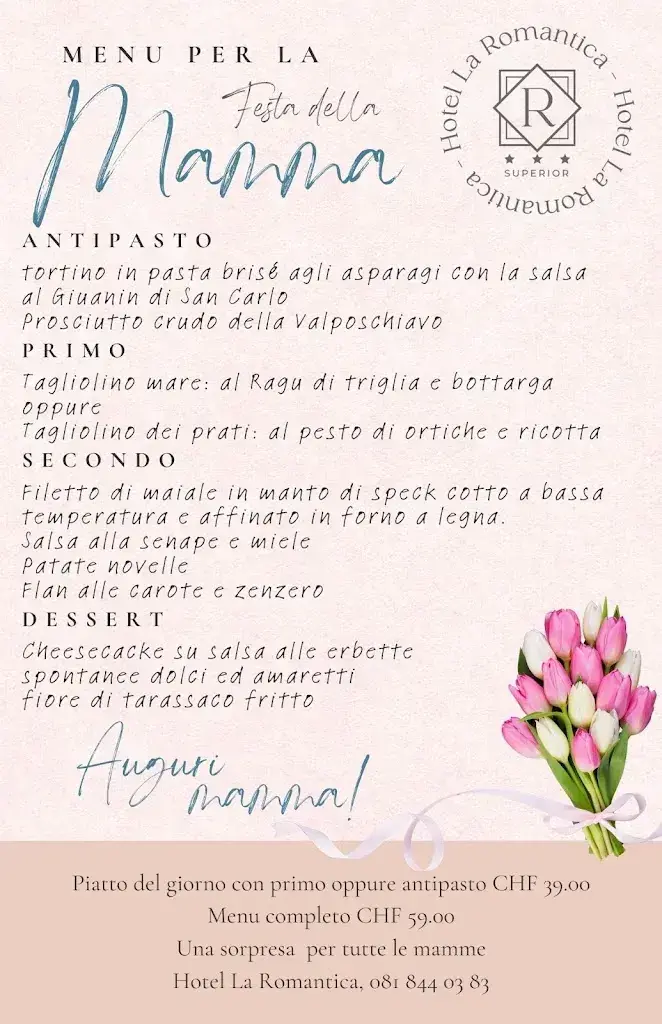 MENU PER LA
Festa della
Mamma
Hotel La Romantica - Hotel La Romantica -
R
SUPERIOR
ANTIPASTO
tortino in pasta brisé agli asparagi con la salsa
al Giuanin di San Carlo
Prosciutto crudo della Valposchiavo
PRIMO
Tagliolino mare: al Ragu di triglia e bottarga
oppure
Tagliolino dei prati: al pesto di ortiche e ricotta
SECONDO
Filetto di maiale in manto di speck cotto a bassa
temperatura e affinato in forno a legna.
Salsa alla senape e miele
Patate novelle
Flan alle carote e zenzero
DESSERT
Cheesecacke su salsa alle erbette
spontanee dolci ed amaretti
fiore di tarassaco fritto
Auguri
mamma!
Piatto del giorno con primo oppure antipasto CHF 39.00
Menu completo CHF 59.00
Una sorpresa per tutte le mamme
Hotel La Romantica, 081 844 03 83